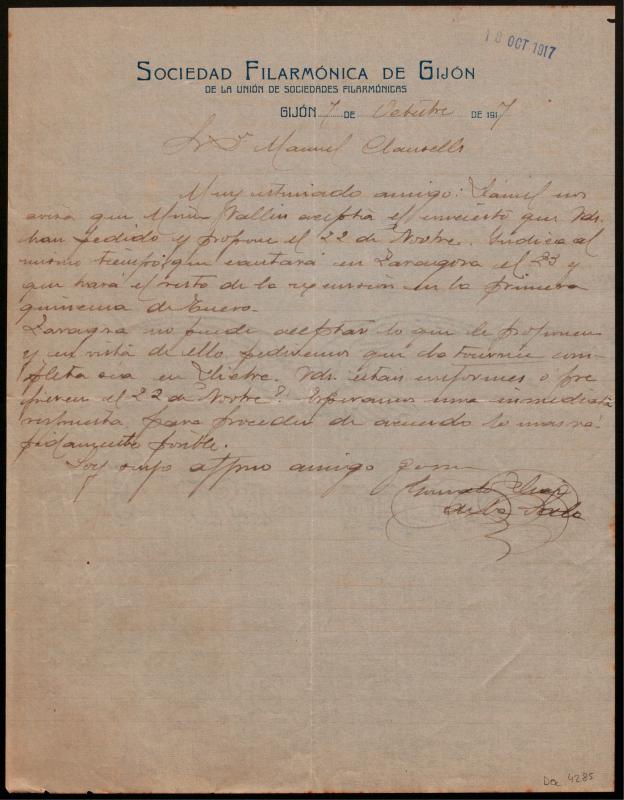 18 OCT 1917
SOCIEDAD FILARMÓNICA DE GIJÓN
DE LA UNIÓN DE SOCIEDADES FILARMÓNICAS
GIJÓN 7 DE Octubre DE 1917
Sr Dn Manuel Clausells
Muy estimado amigo: Daniel nos
avisa que Ninin Vallin acepta el concierto que Vds.
han pedido y propone el 22 de Novbre. Indica al
mismo tiempo que cantará en Zaragoza el 23 y
que hará el resto de la excursión en la primera
quincena de Enero.
Zaragoza no puede aceptar lo que le proponen
y en vista de ello pediremos que la tournée com-
pleta sea en Dicbre. Vds. están conformes ó pre
fieren el 22 de Novbre? Esperamos una inmediata
respuesta para proceder de acuerdo lo mas rá-
pidamente posible.
Soy suyo affmo amigo
de la
Doc 4285